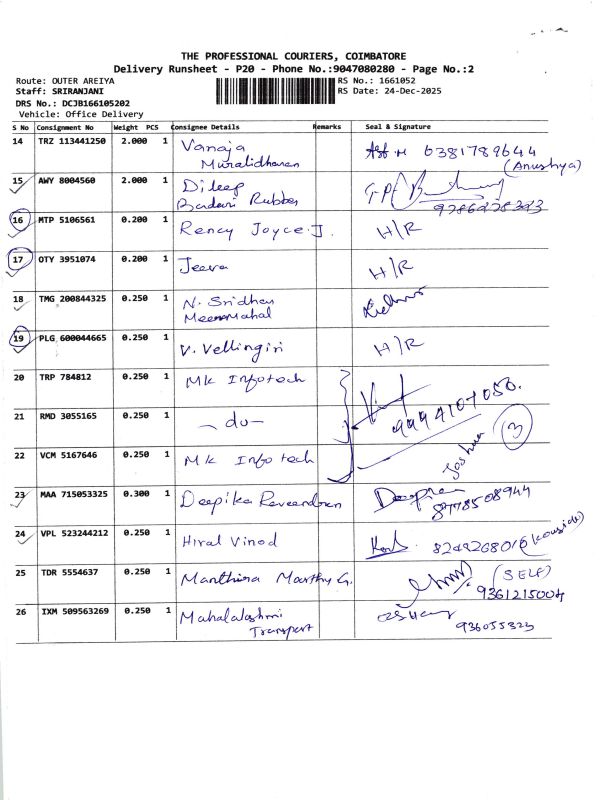 THE PROFESSIONAL COURIERS, COIMBATORE
Delivery Runsheet - P20 - Phone No.:9047080280 - Page No.:2
Route: OUTER AREIYA RS No.: 1661052
Staff: SRIRANJANI RS Date: 24-Dec-2025
DRS No.: DCJB166105202
Vehicle: Office Delivery
S No Consignment No Weight PCS Consignee Details Remarks Seal & Signature
14 TRZ 113441250 2.000 1 Vanaja 6381789644
Muralidharan (Anushya)
15 AWY 8004560 2.000 1 Dileep
Badari Rubber
16 MTP 5106561 0.200 1 Rency Joyce.J. H/R
17 OTY 3951074 0.200 1 Jeeva H/R
18 TMG 200844325 0.250 1 N. Sridhar
Meenamahal
19 PLG 600044665 0.250 1 V. Vellingiri H/R
20 TRP 784812 0.250 1 MK Infotech
21 RMD 3055165 0.250 1 -do- 3
22 VCM 5167646 0.250 1 MK Infotech Joshua
23 MAA 715053325 0.300 1 Deepika Raveendran
8778508944
24 VPL 523244212 0.250 1 Hiral Vinod 8249268016
25 TDR 5554637 0.250 1 (SELF)
9361215004
26 IXM 509563269 0.250 1 Mahalakshmi
Transport 936055323